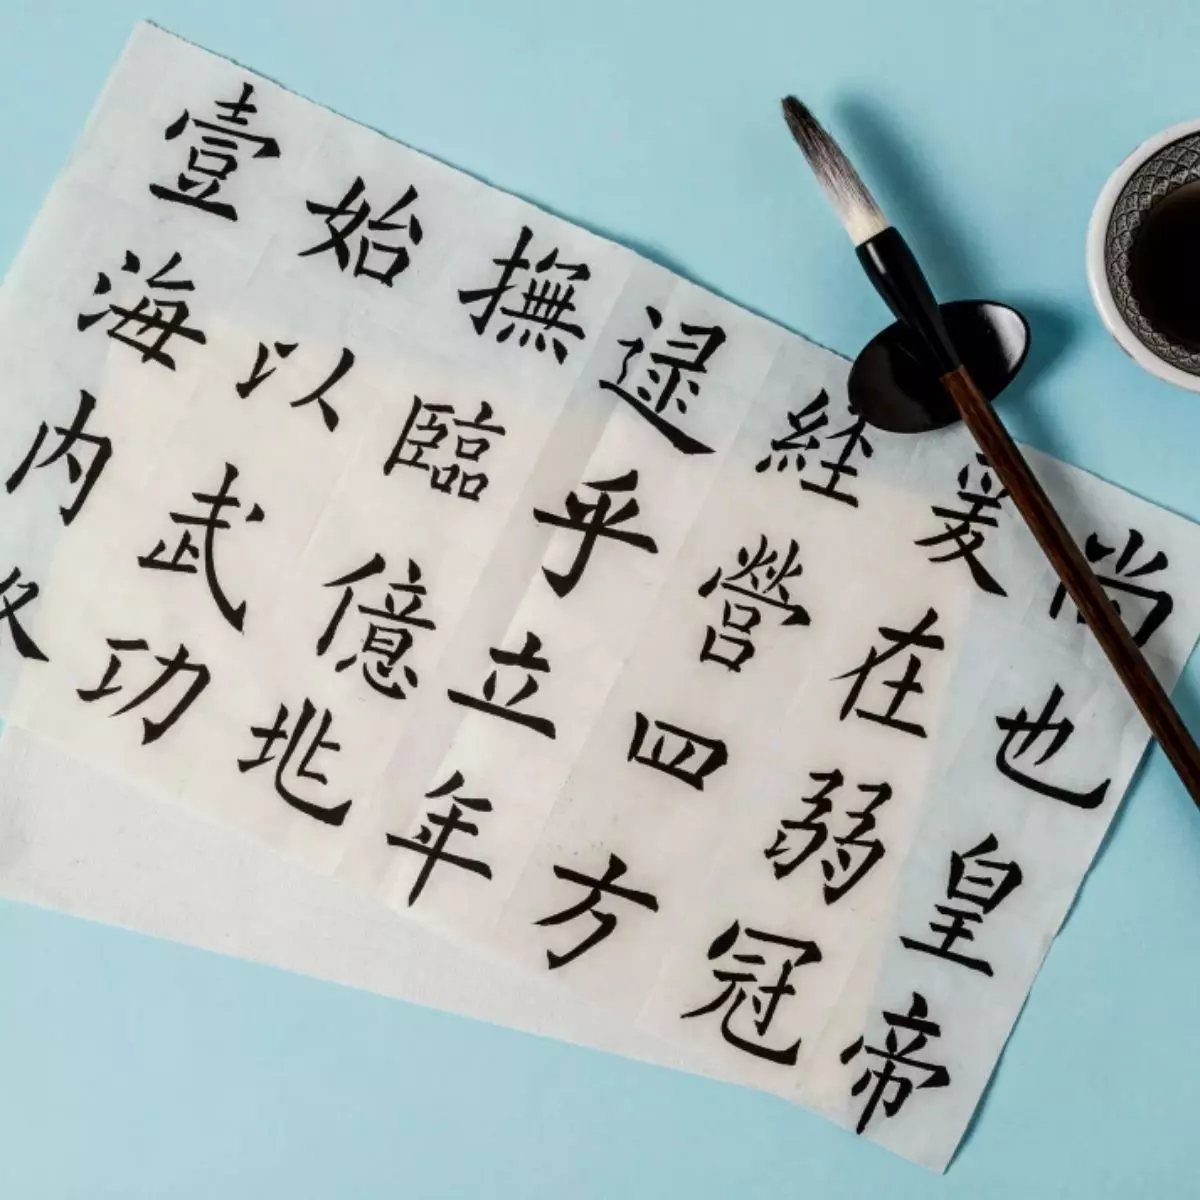 尚也皇帝
爰在弱冠
經營四方
逮乎立年
撫臨億兆
始以武功
壹海内